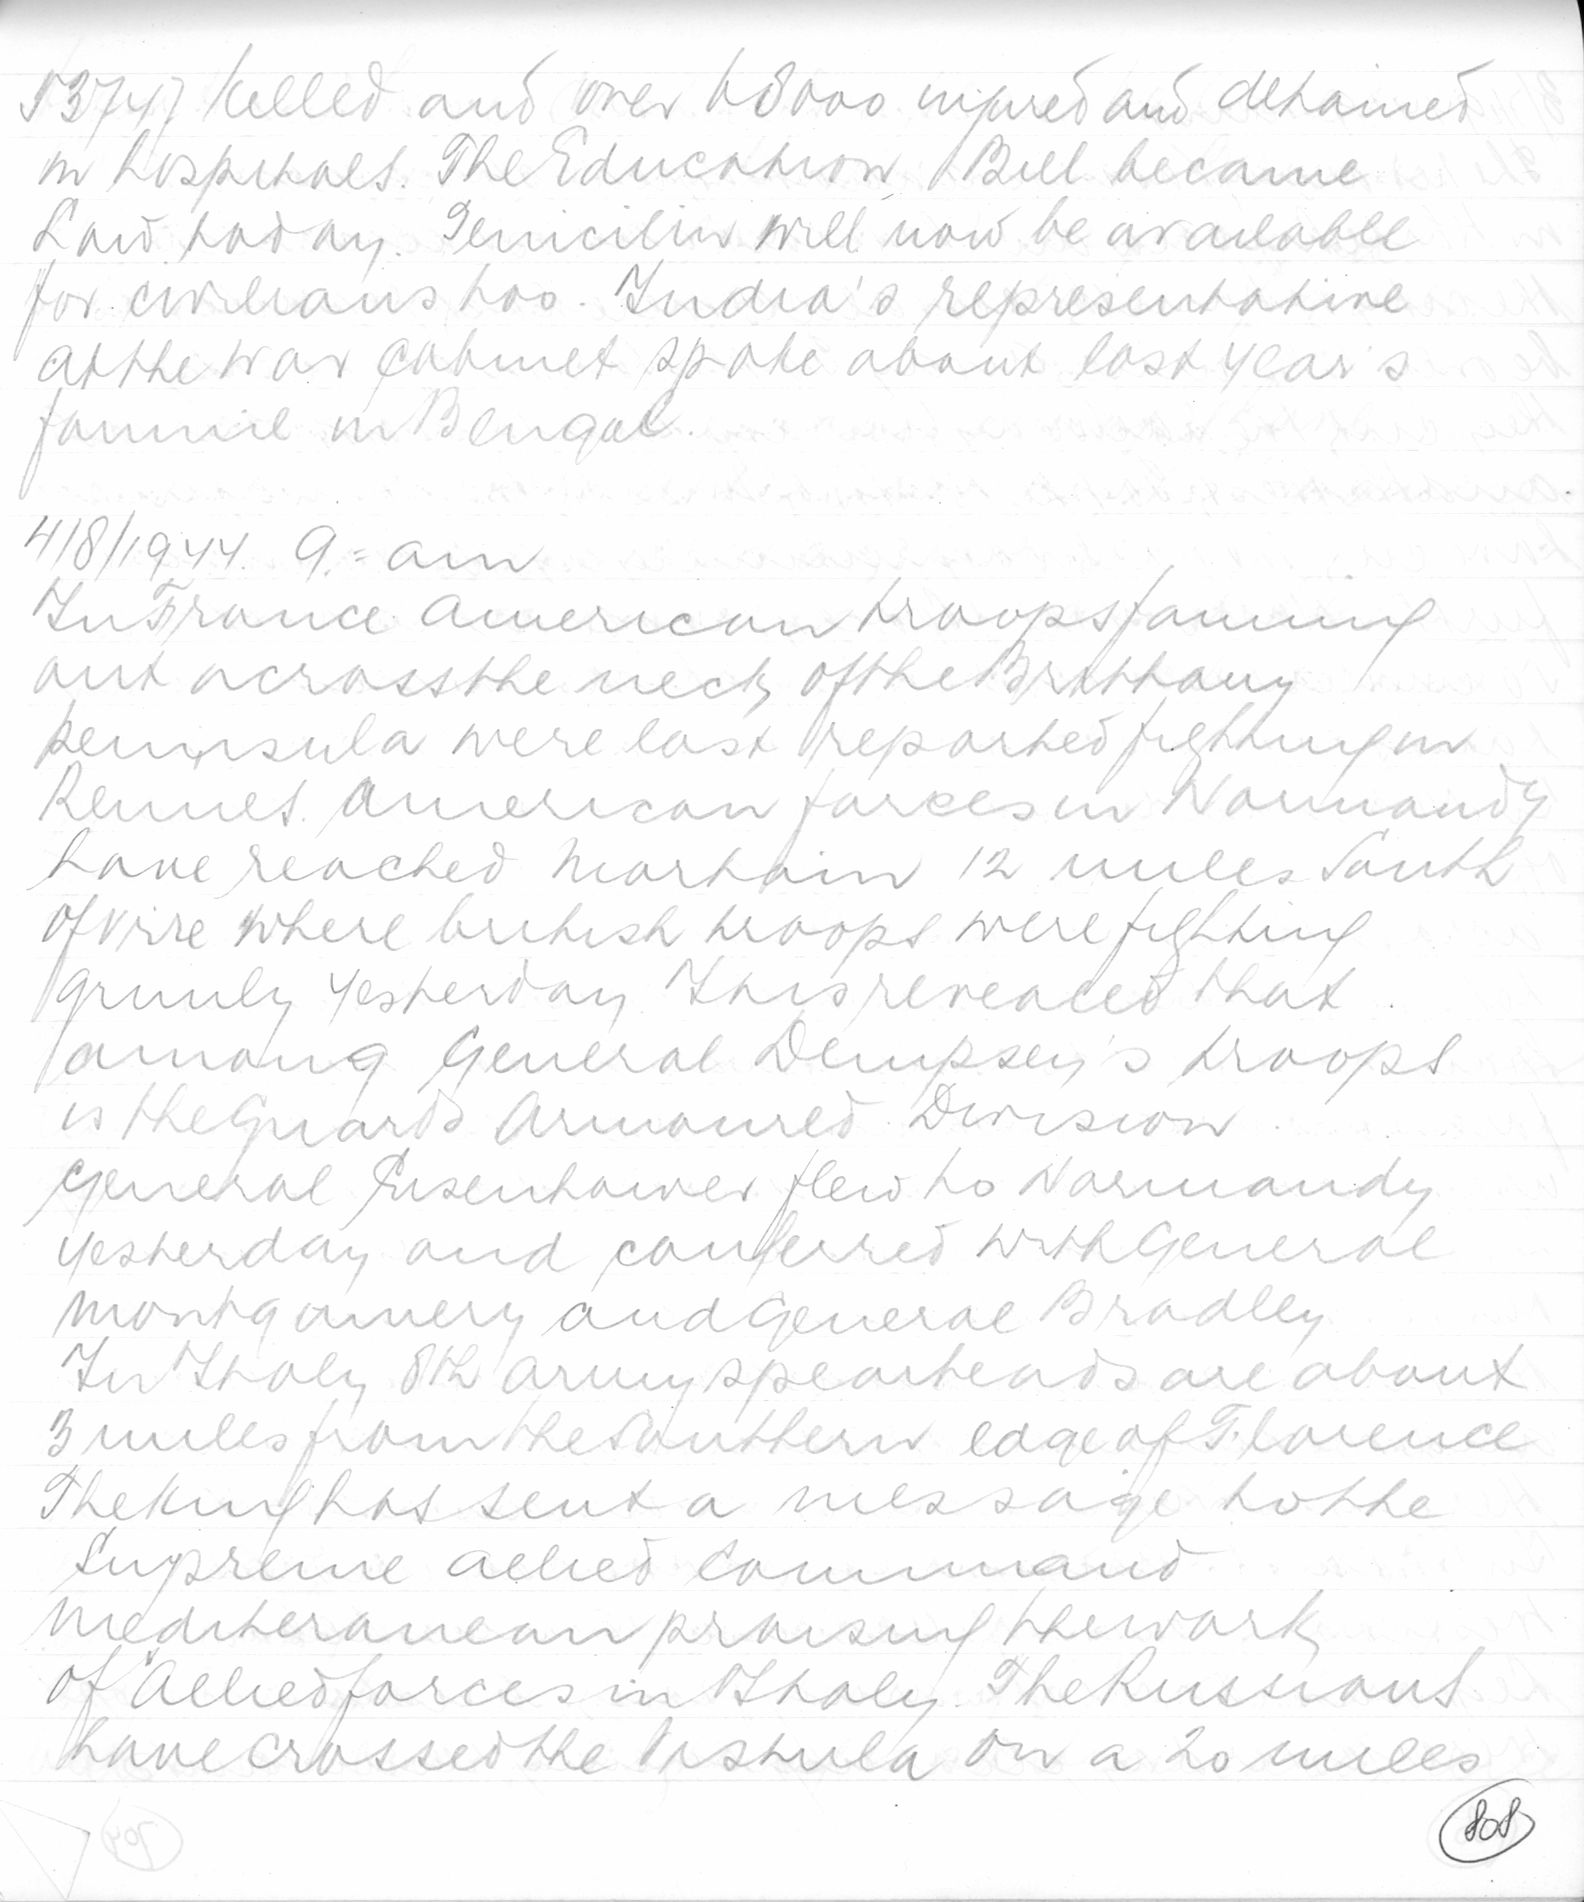 53747 killed and over 68000 injured and detained
in hospitals. The Education Bill became
Law today. Penicilin will now be available
for civilians too. India's representative
at the war cabinet spoke about last year's
famine in Bengal.
4/8/1944. 9.= am
In France American troops fanning
out across the neck of the Britthany
peninsula were last reported fighting in
Rennes. American forces in Normandy
have reached Mortain 12 miles South
of Vire where british troops were fighting
grimly yesterday. It is revealed that
among General Dempsey's troops
is the Guards Armoured Division
General Eisenhower flew to Normandy
yesterday and conferred with General
Montgomery and General Bradley
In Italy 8th army spearheads are about
3 miles from the Southern edge of Florence
The King has sent a message to the
Supreme allied Command
Mediteranean praising the work
of Allied forces in Italy. The Russians
have crossed the Vistula on a 20 miles
808